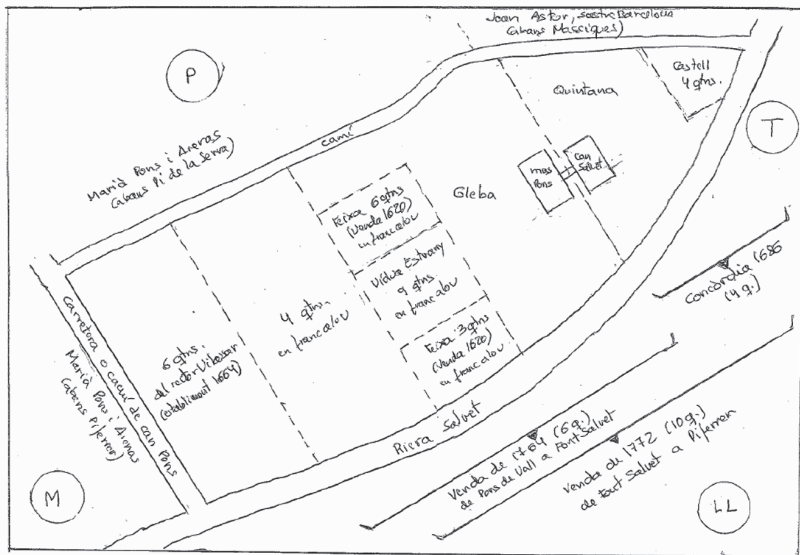 Joan Astor, sastre Barcelona
(abans Massiques)
P
Castell
4 qtns.
Quintana
T
Marià Pons i Arenas
(abans Pi de la Serra)
camí
mas
Pons
can
Salvet
Gleba
Teixa 6 qtns
(Venda 1620)
en franc alou
Vídua Estrany
9 qtns
en franc alou
Teixa 3 qtns
(Venda 1620)
en franc alou
4 qtns.
en franc alou
6 qtns.
del rector Vilassar
(establiment 1664)
Carretera o camí de can Pons
Marià Pons i Arenas
(abans Piferrer)
Riera Salvet
Concòrdia 1686
(4 q.)
Venda de 1764 (6 q.)
de Pons de Vall a Font Salvet
Venda du 1772 (10 q.)
de Font Salvet a Piferrer
M
LL